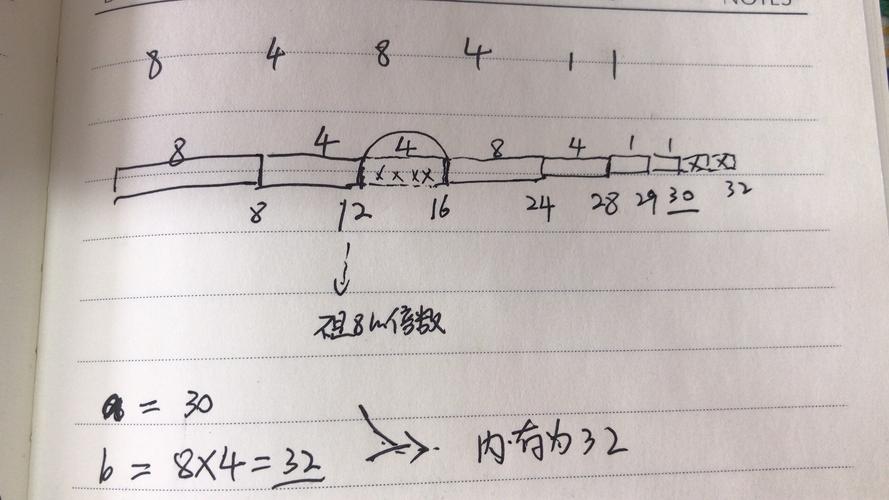 NOTES
8 4 8 4 1 1
8 4 4 8 4 1 1
x x x x x x
8 12 16 24 28 29 30 32
不是8的倍数
a = 30
b = 8×4=32
内存为32